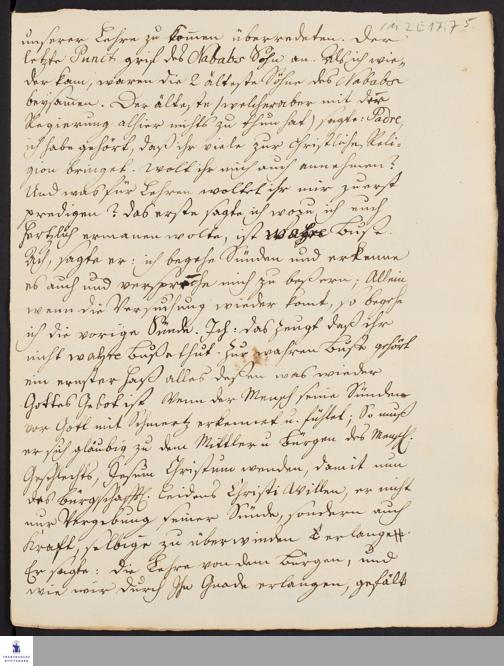 1M 2 E 17:75
unserer Lehre zu kommen überredeten. Der
letzte Punct grif des Nababs Sohn an. Als ich wie-
der kam, waren die 2 älteste Söhne des Nababs
beysamen. Der älteste /welcher aber mit der
Regierung alhier nichts zu thun hat/ sagte: Padre,
ich habe gehört, daß ihr viele zur Christlichen Reli-
gion bringet. Wolt ihr mich auch annehmen?
Und was für Lehren woltet ihr mir zuerst
predigen? das erste sagte ich wozu ich euch
hertzlich ermanen wolte, ist wahre Buße.
Ich, sagte er: ich begehe Sünden und erkenne
es auch und verspreche mich zu beßern; Allein
wenn die Versuchung wieder komt, so begehe
ich die vorige Sünde. Ich: das zeugt daß ihr
nicht wahre Buße thut. Zur wahren Buße gehört
ein ernster Haß alles deßen was wieder
Gottes Gebot ist Wenn der Mensch seine Sünden
vor Gott mit Schmertz erkennet u. fühlet; So muß
er sich gläubig zu dem Mittler u Bürgen des Menschl.
Geschlechts, Jesum Christum wenden, damit nun
des bürgschaftl. Leidens Christi willen, er nicht
nur Vergebung seiner Sünde, sondern auch
Kraft, selbige zu überwinden erlange.
Er sagte: die Lehre von dem Bürgen, und
wie wir durch Ihn Gnade erlangen, gefält
FRANCKESCHE
STIFTUNGEN